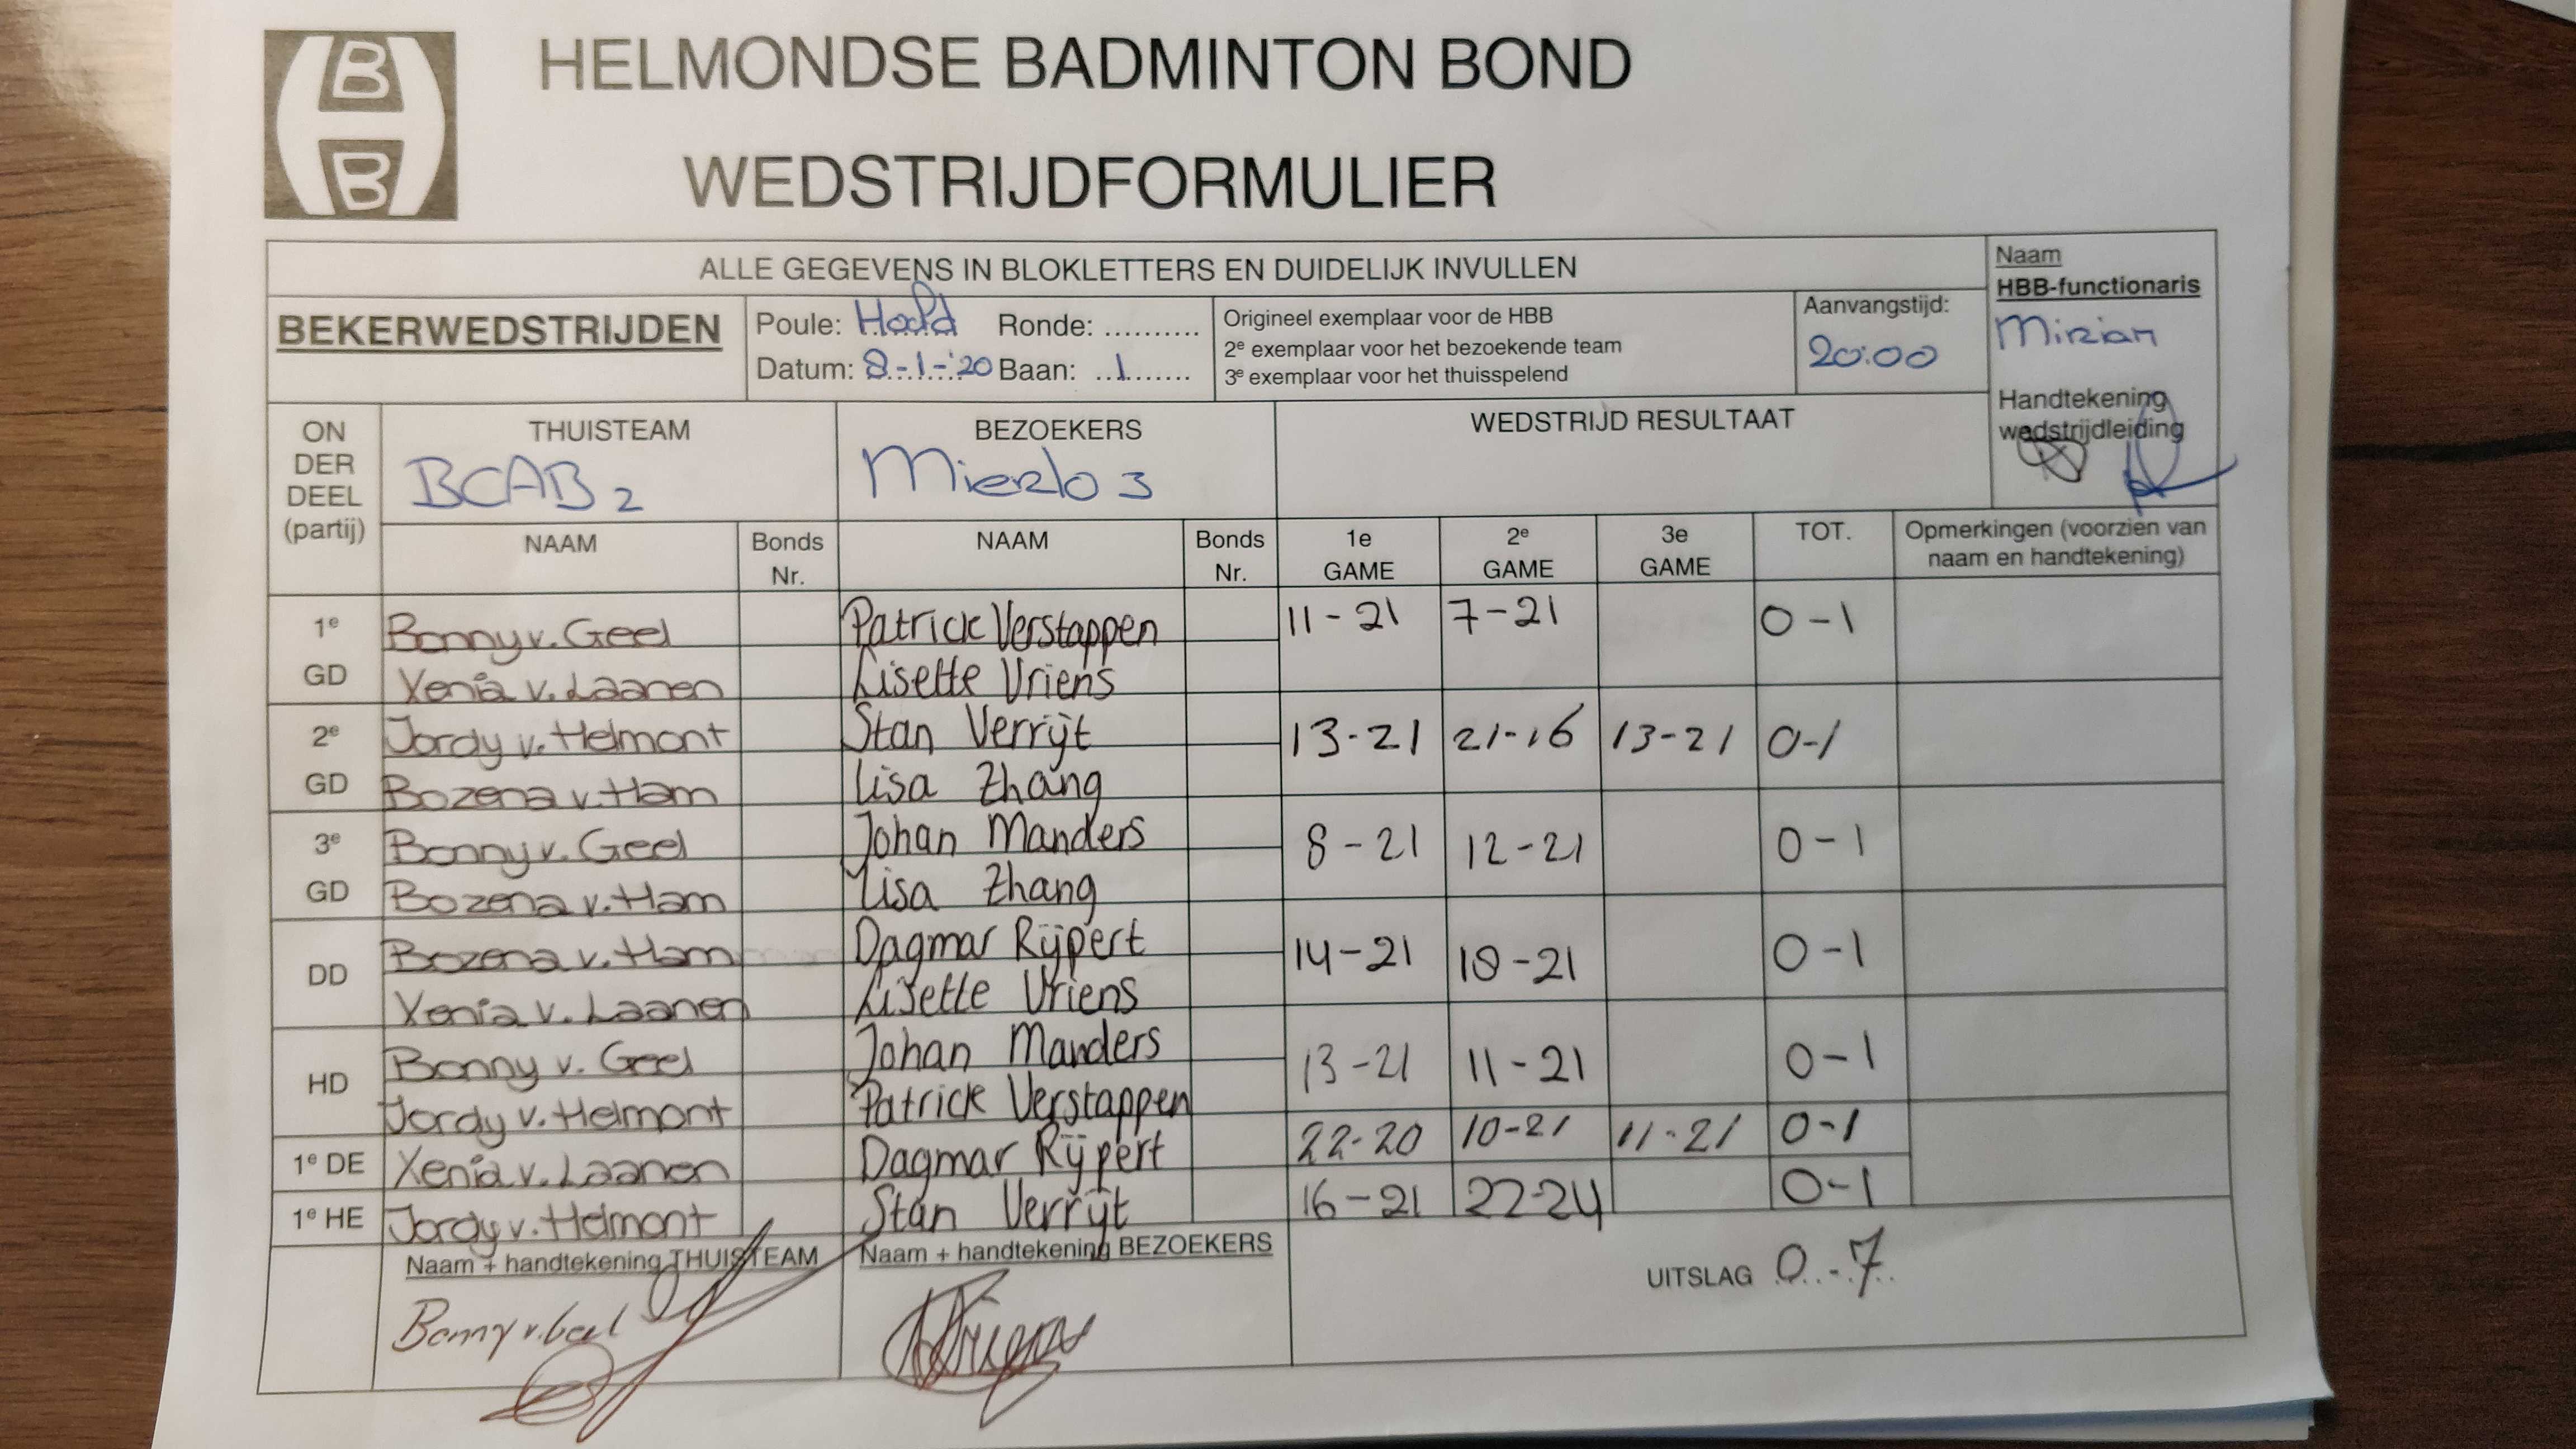 HBB
HELMONDSE BADMINTON BOND
WEDSTRIJDFORMULIER
ALLE GEGEVENS IN BLOKLETTERS EN DUIDELIJK INVULLEN
Naam
HBB-functionaris
Mirian
Handtekening
wedstrijdleiding
BEKERWEDSTRIJDEN
Poule: Hoofd Ronde: ..........
Datum: 8-1-'20 Baan: ...1.......
Origineel exemplaar voor de HBB
2e exemplaar voor het bezoekende team
3e exemplaar voor het thuisspelend
Aanvangstijd:
20:00
ON
DER
DEEL
(partij)
THUISTEAM
BCAB 2
BEZOEKERS
Mierlo 3
WEDSTRIJD RESULTAAT
NAAM Bonds Nr. NAAM Bonds Nr. 1e GAME 2e GAME 3e GAME TOT. Opmerkingen (voorzien van
naam en handtekening)
1e Bonny v. Geel Patrick Verstappen 11-21 7-21 0-1
GD Xenia v. Laanen Lisette Vriens
2e Jordy v. Helmont Stan Verrijt 13-21 21-16 13-21 0-1
GD Bozena v. Ham Lisa Zhang
3e Bonny v. Geel Johan Manders 8-21 12-21 0-1
GD Bozena v. Ham Lisa Zhang
DD Bozena v. Ham Dagmar Rijpert 14-21 18-21 0-1
Xenia v. Laanen Lisette Vriens
HD Bonny v. Geel Johan Manders 13-21 11-21 0-1
Jordy v. Helmont Patrick Verstappen
1e DE Xenia v. Laanen Dagmar Rijpert 22-20 10-21 11-21 0-1
1e HE Jordy v. Helmont Stan Verrijt 16-21 22-24 0-1
Naam + handtekening THUISTEAM
Bonny v. Geel
Naam + handtekening BEZOEKERS
UITSLAG 0-7